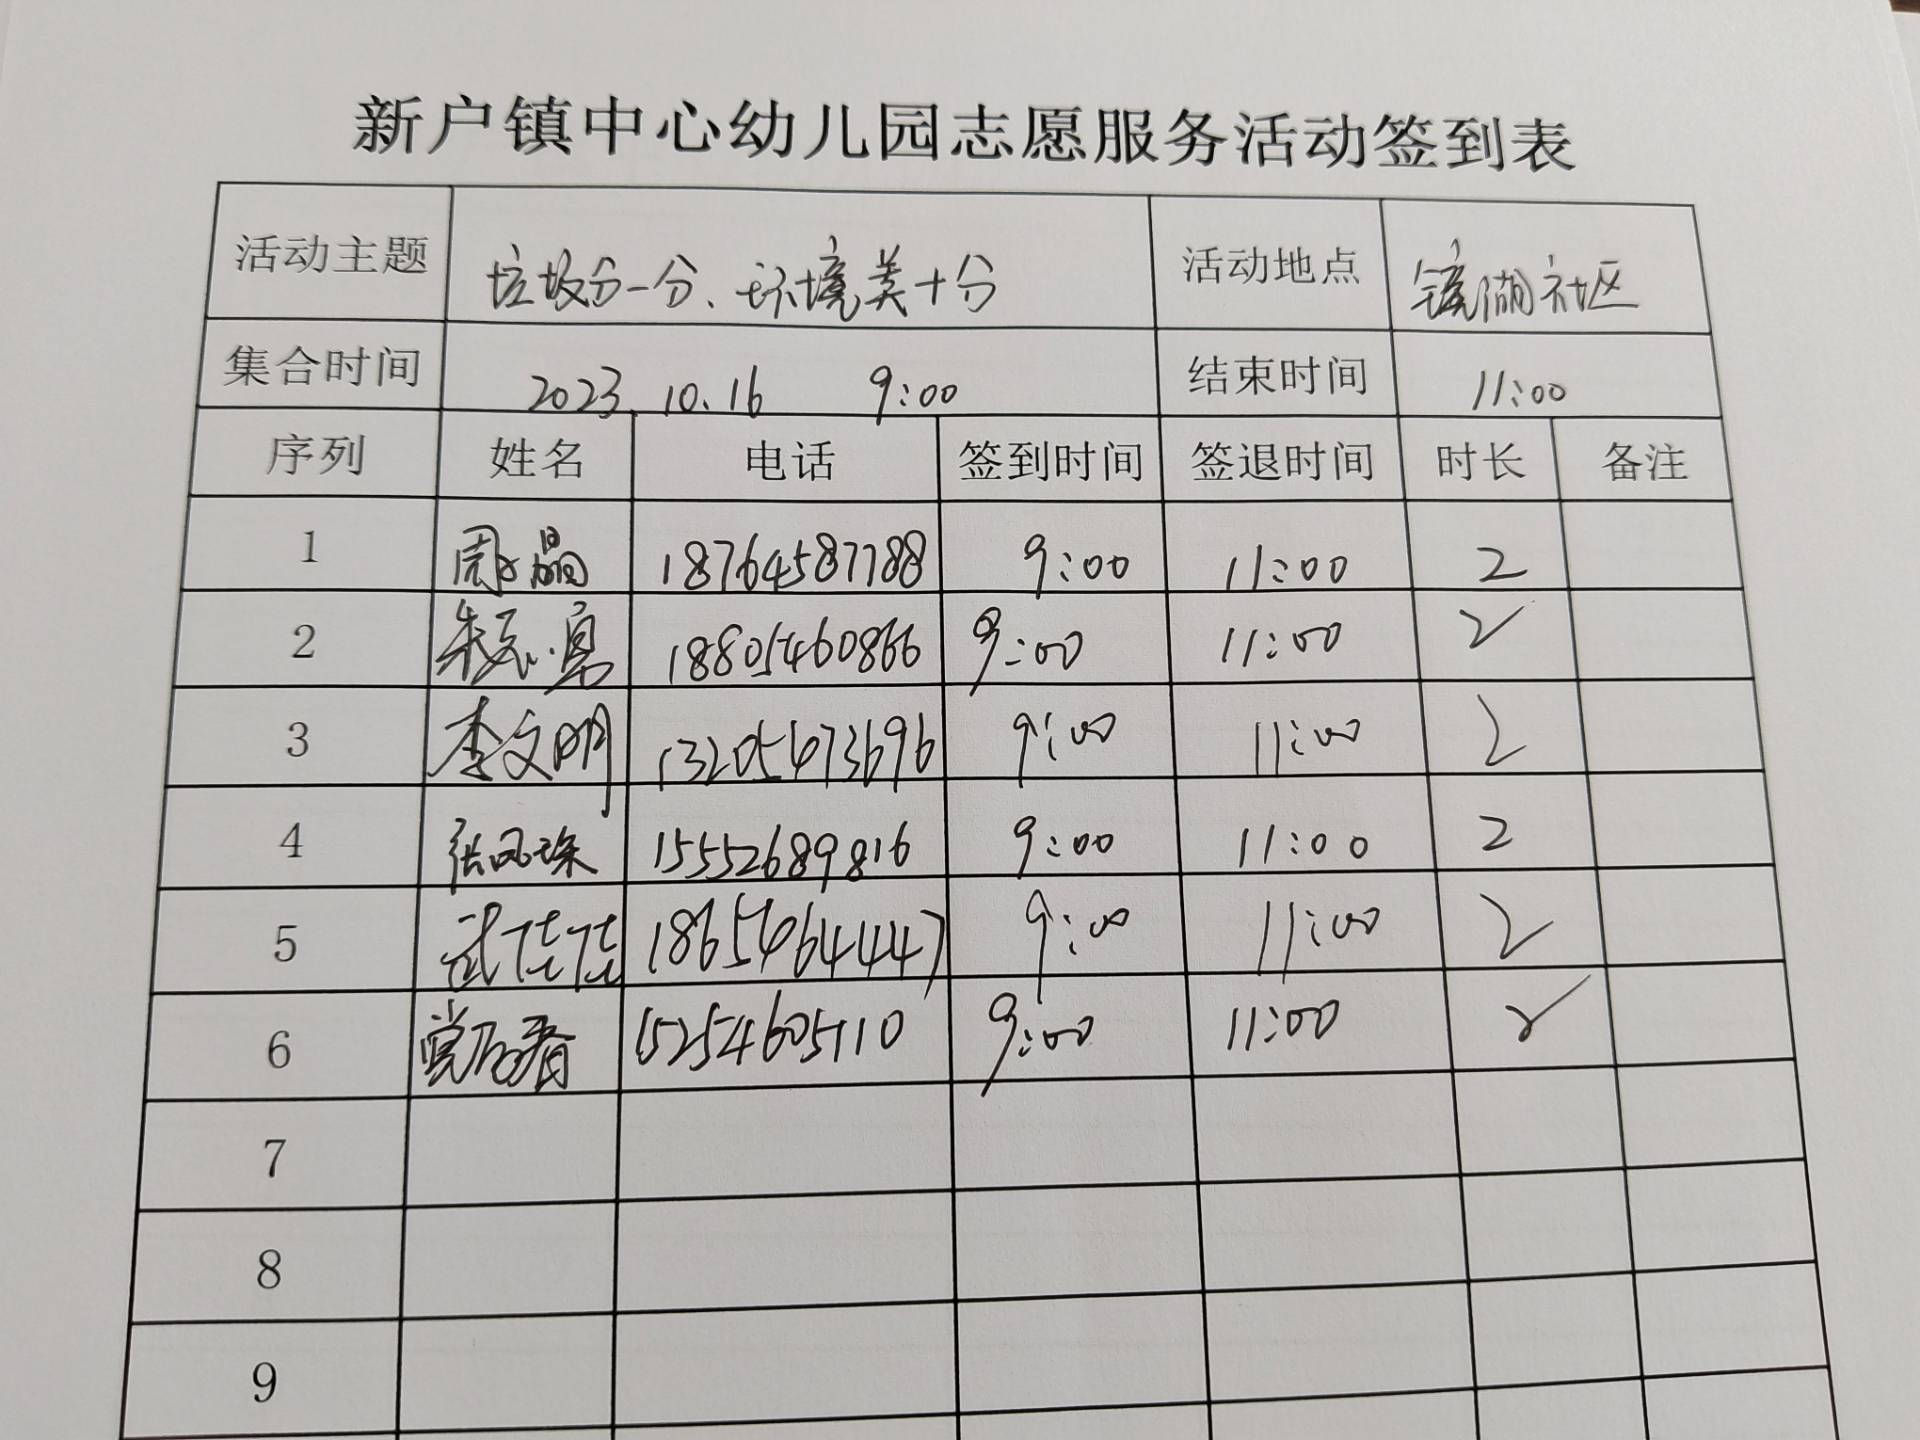 新户镇中心幼儿园志愿服务活动签到表
活动主题 垃圾分一分、环境美十分 活动地点 镜湖社区
集合时间 2023.10.16 9:00 结束时间 11:00
序列 姓名 电话 签到时间 签退时间 时长 备注
1 周晶 18764587788 9:00 11:00 2
2 18805460866 9:00 11:00 2
3 李文明 13205473696 9:00 11:00 2
4 张凤珠 15552689816 9:00 11:00 2
5 武佳佳 18654644447 9:00 11:00 2
6 15254605110 9:00 11:00 2
7
8
9